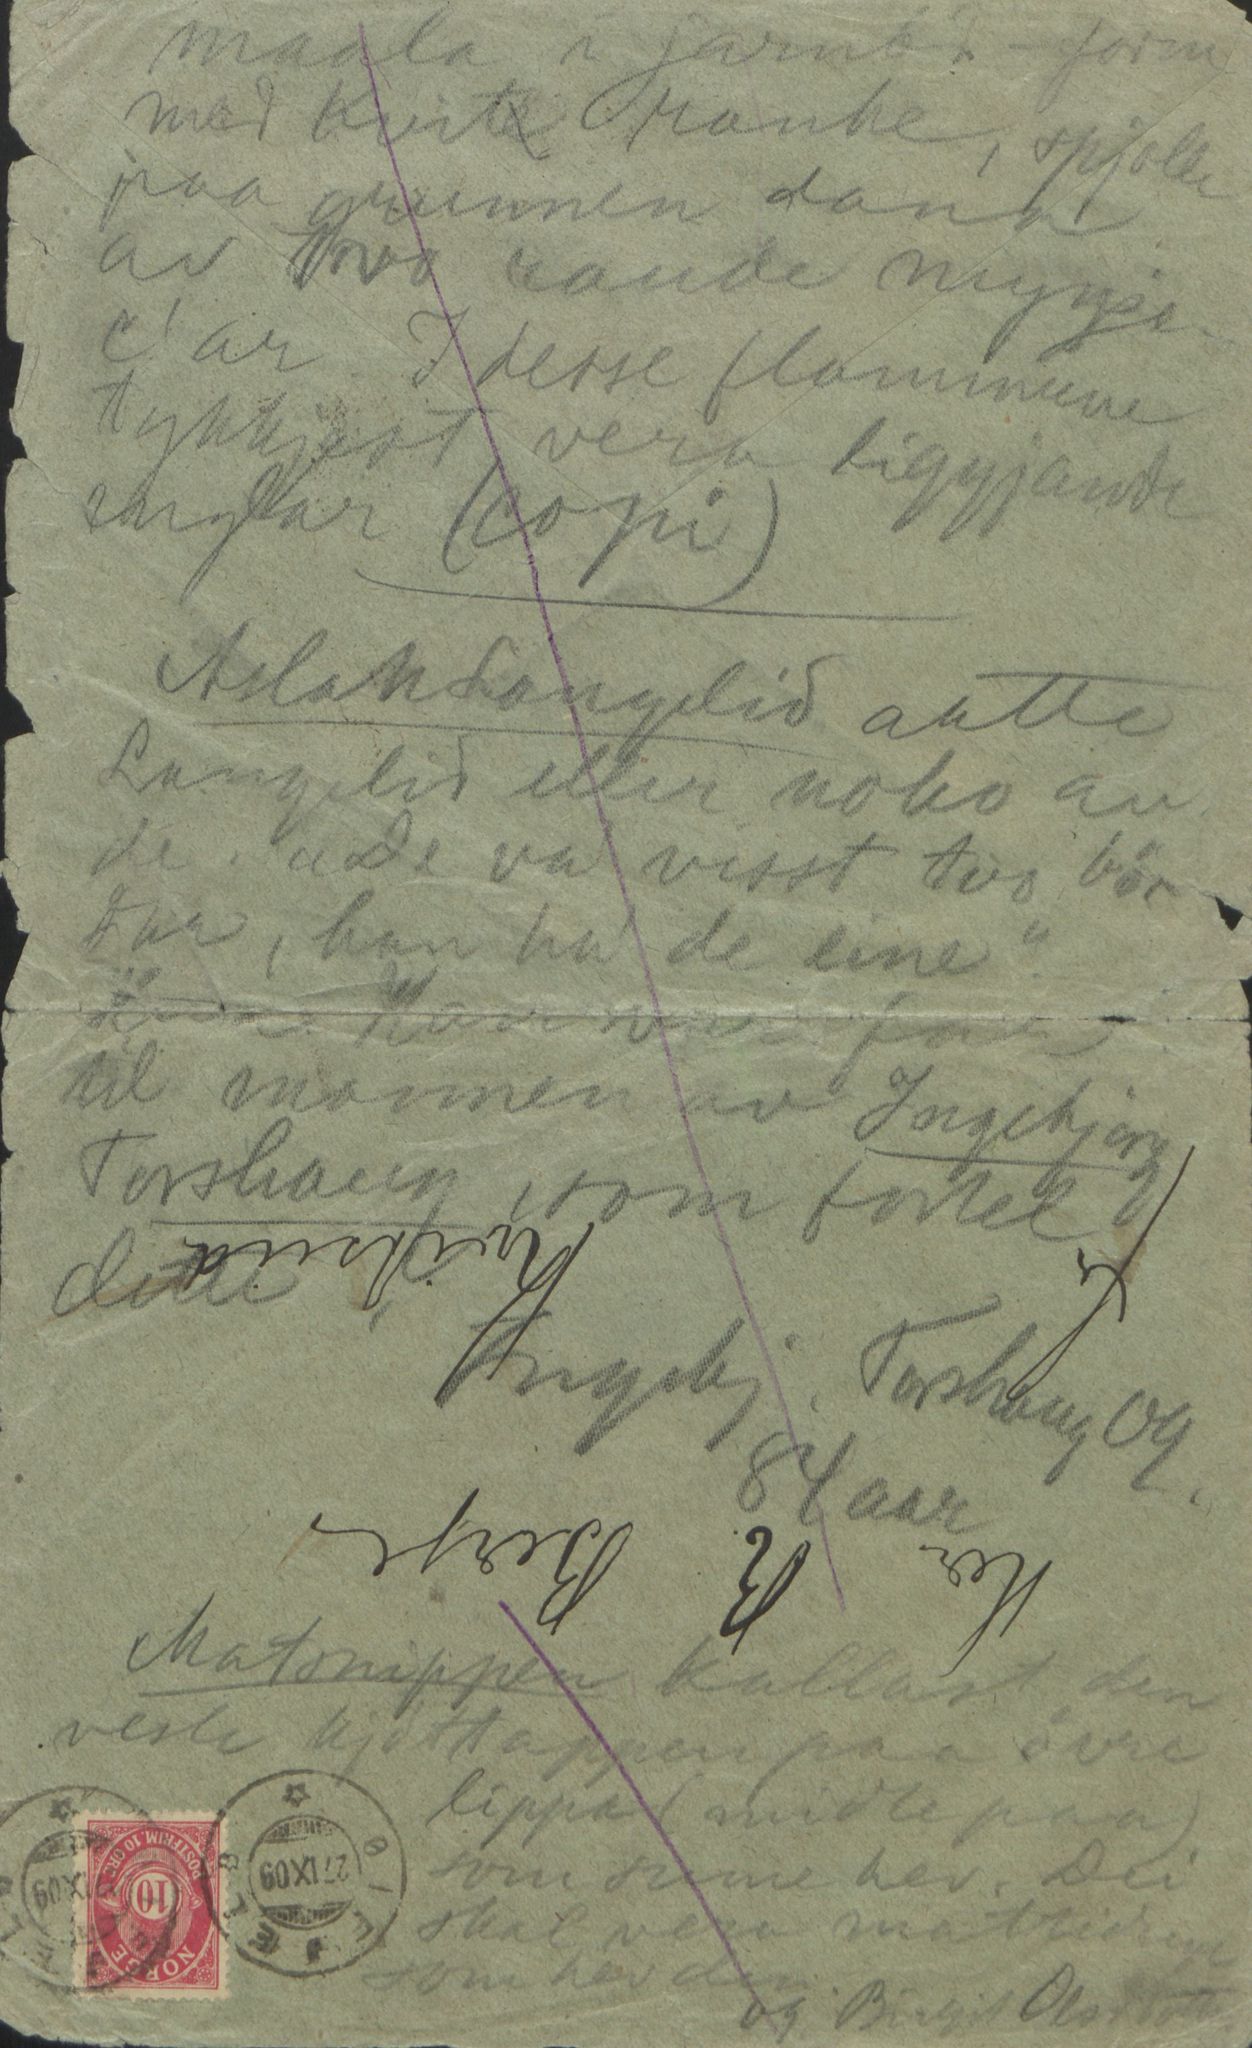 maala i jarnkr - form
med kvite kranke, spjølke
paa grunnen dana
av tvo raude
c'ar. I desse flammune
tykkjest vera liggjande
fuglar (copi)
Aslak Langelid aatte
Langelid eller noko av
de. "De va visst tvo bør
tar, han ha de eine".
far
til mannen av Ingebjørg
Torshaug, som fortel
dette.
Ingebj. Torshaug 09.
84 aar
Herr R Berge
Matsnippen kallast den
vesle kjøttappen paa övre
lippa (midt paa)
som sume hev. Dei
skal vera
som hev den.
og Birgit Olsdotter
NORGE
10
POSTFRIM. 10 ØRE
27 IX 09
IX 09